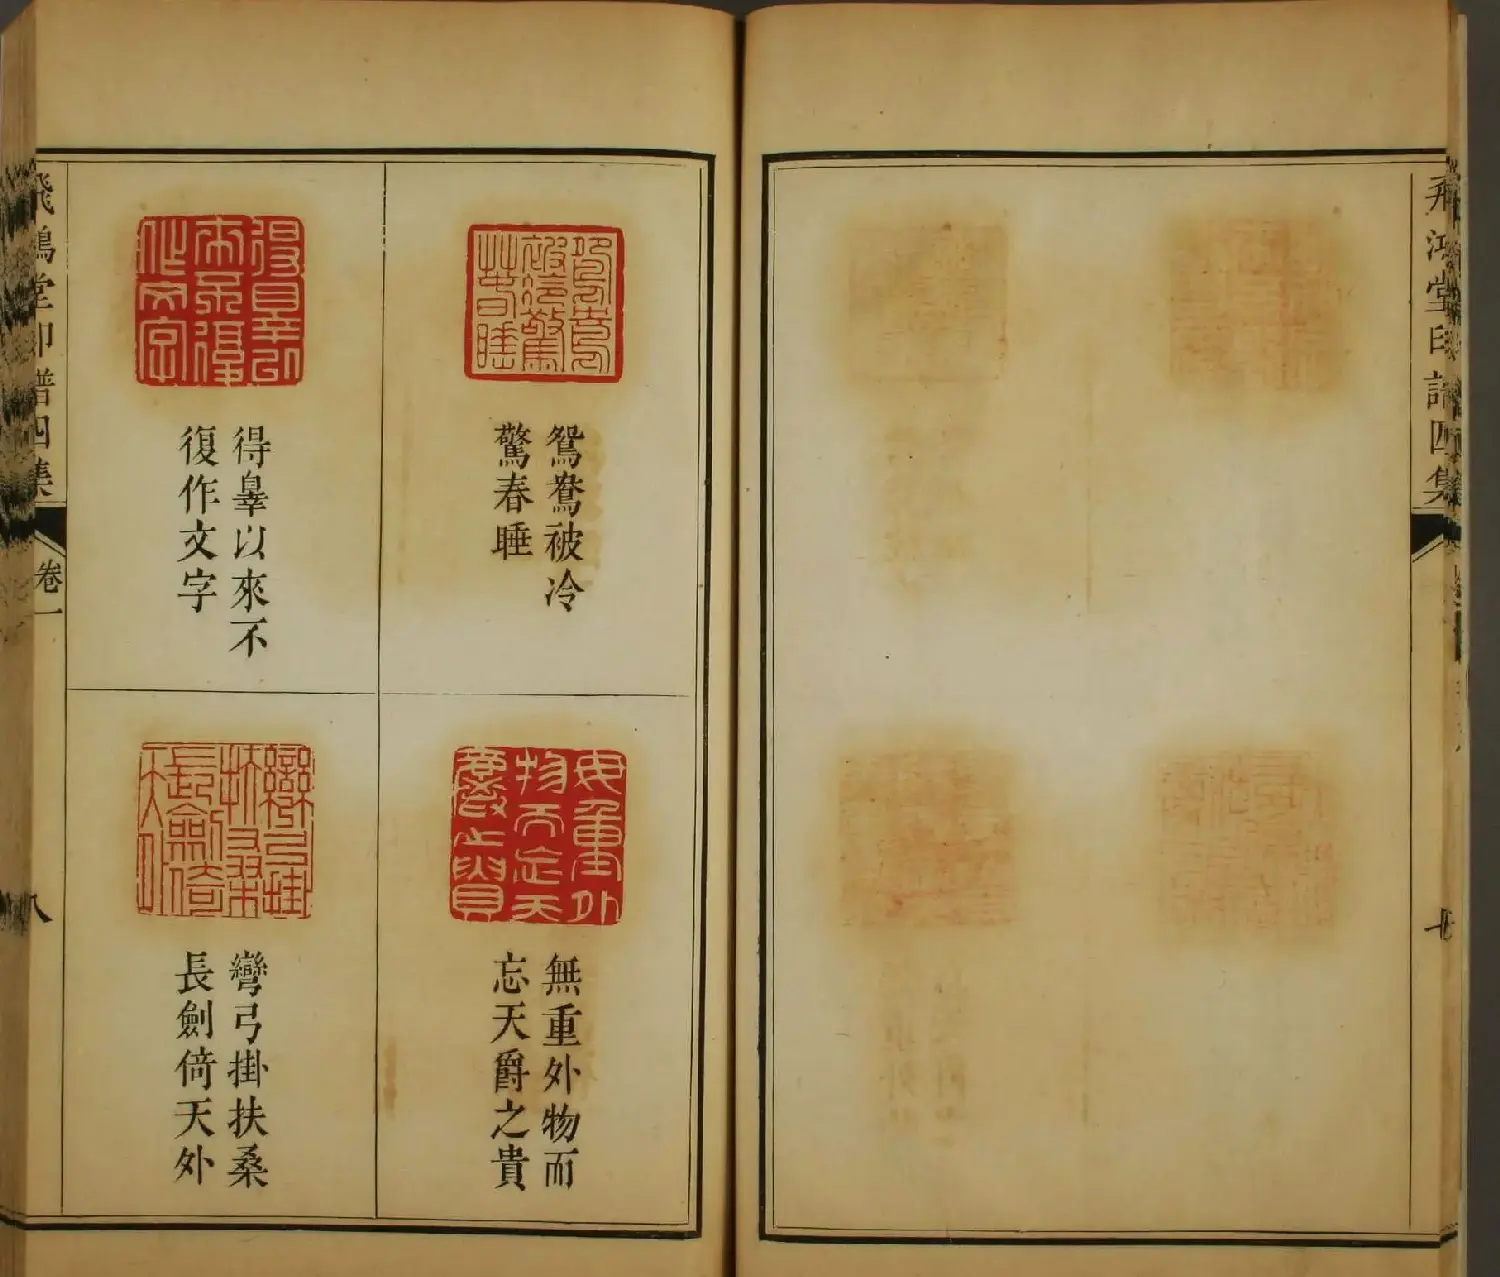 飛鴻堂印譜四集
鴛鴦被冷
驚春睡
無重外物而
忘天爵之貴
得辠以來不
復作文字
彎弓掛扶桑
長劍倚天外
飛鴻堂印譜四集
卷一
八